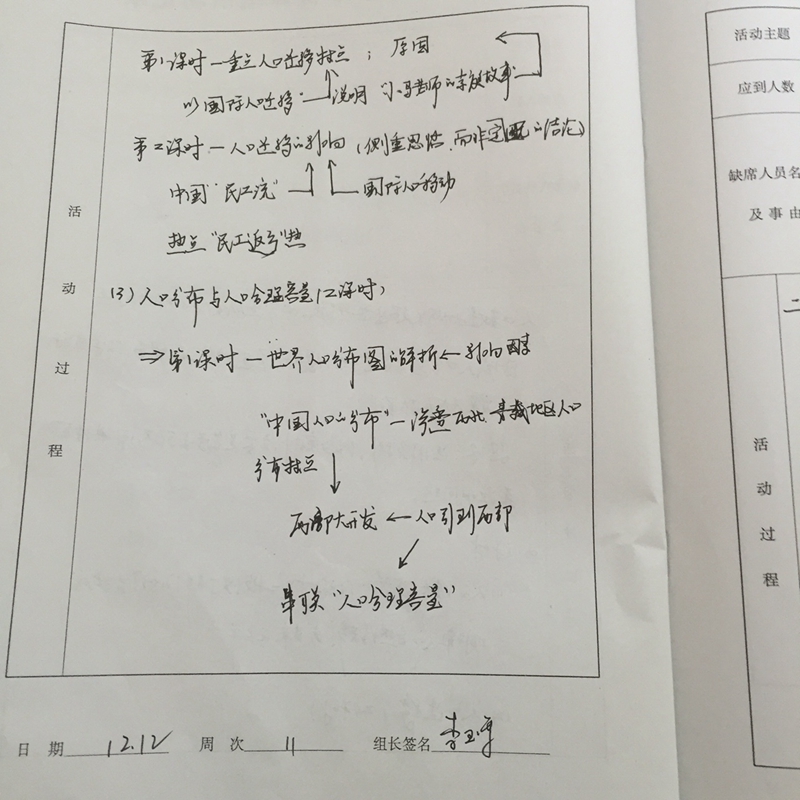 第1课时—重点人口迁移特点；原因
以"国际人口迁移"—说明"小马老师的家族故事"
第2课时—人口迁移的影响（侧重思路，而非定的结论）
中国"民工流" 国际人口移动
热点"民工返乡"热
(3)人口分布与人口合理容量（2课时）
⇒第1课时—世界人口分布图的解析←影响因素
"中国人口的分布"—西北、青藏地区人口
分布特点
西部大开发←人口引到西部
串联"人口合理容量"
活动过程
日期 12.12 周次 11 组长签名
活动主题
应到人数
缺席人员名
及事由
二
活动过程